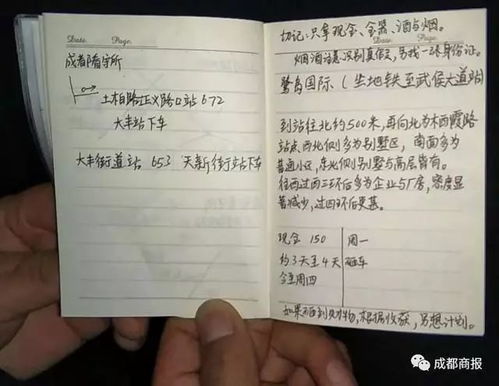 Date. Page.
成都看守所
土柏路正义路口站 672
大丰站下车
大丰街道站 653 天新街站下车
Date. Page.
切记:只拿现金、金器、酒与烟。
烟酒注意识别真假,另找一张身份证。
鹭岛国际(坐地铁至武侯大道站)
到站往北约500米,再向北为木西霞路
站点西北侧多为别墅区,南面多为
普通小区,东北侧别墅与高层皆有。
往西过两三环后多为企业与厂房,密度显
著减少,过四环后更甚。
现金 150 周一
约3天至4天 砸车
今至周四
如果 到财物,根据收获,另想计划。
成都商报